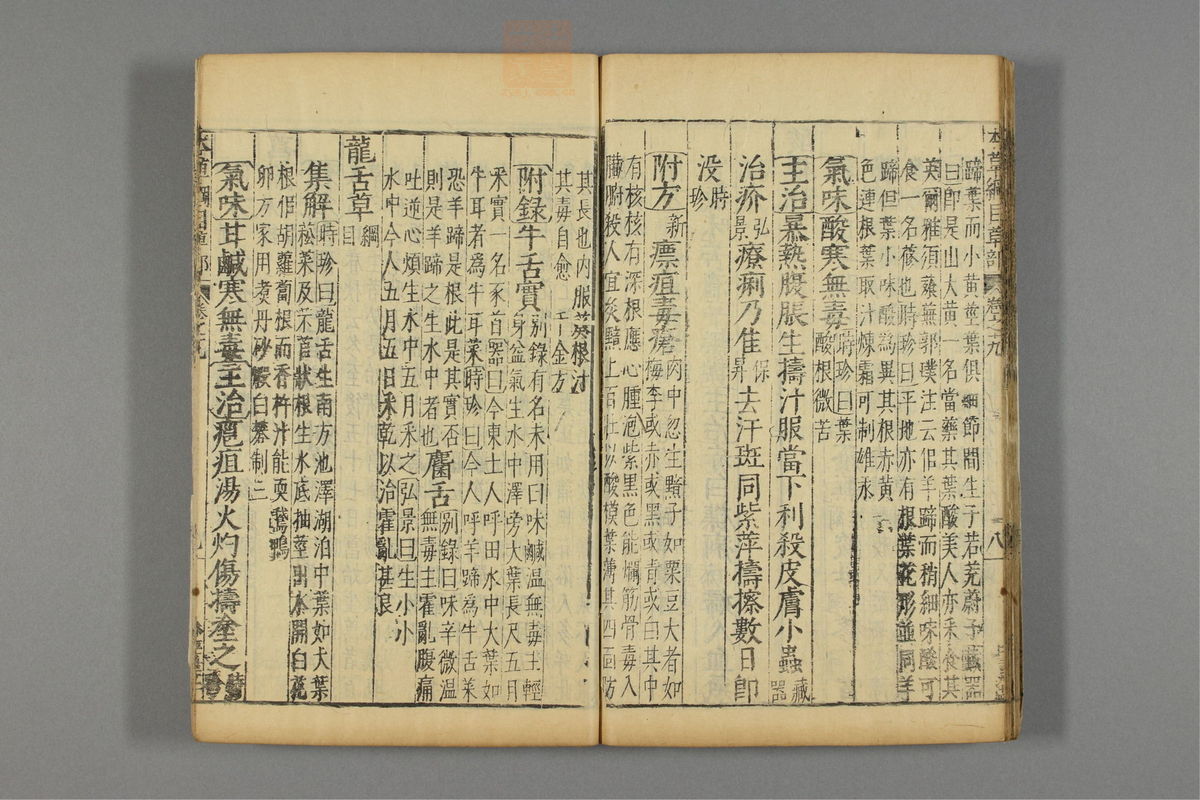 蹄葉而小黃莖葉俱細節間生子若茺蔚子藏器
曰即是山大黃一名當藥其葉酸美人亦采食其
英爾雅須蕵蕪郭璞注云似羊蹄而稍細味酸可
食一名蓚也時珍曰平地亦有根葉花形並同羊
蹄但葉小味酸為異其根赤黃
色連根葉取汁煉霜可制雄汞
氣味酸寒無毒時珍曰葉
酸根微苦
主治暴熱腹脹生擣汁服當下利殺皮膚小蟲藏
器
治疥弘
景療痢乃佳保
昇去汗斑同紫萍擣擦數日即
没時
珍
附方新
瘭疽毒瘡肉中忽生黯子如粟豆大者如
梅李或赤或黑或青或白其中
有核核有深根應心腫泡紫黑色能爛筋骨毒入
臟腑殺人宜灸黯上百壯以酸模葉薄其四面防
其長也内服葉根汁
其毒自愈 千金方
附錄牛舌實別錄有名未用曰味鹹溫無毒主輕
身益氣生水中澤旁大葉長尺五月
采實一名豕首器曰今東土人呼田水中大葉如
牛耳者為牛耳菜時珍曰今人呼羊蹄為牛舌菜
恐羊蹄是根此是其實否
則是羊蹄之生水中者也
䕡舌別錄曰味辛微溫
無毒主霍亂腹痛
吐逆心煩生水中五月采之弘景曰生小小
水中今人五月五日采乾以治霍亂甚良
龍舌草綱
目
集解時珍曰龍舌生南方池澤湖泊中葉如大葉
菘菜及芣苢狀根生水底抽莖出水開白花
根似胡蘿蔔根而香杵汁能耎鵝鴨
卵方家用煮丹砂煅白礬制三
氣味甘鹹寒無毒主治癰疽湯火灼傷擣塗之
本草綱目草部
卷之九
八
本草綱目草部
卷之九